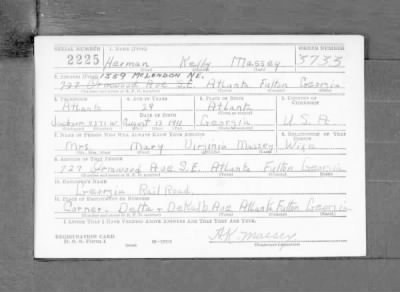 SERIAL NUMBER 1. NAME (Print) ORDER NUMBER
2225 Herman Kelby Massey 3735
2. ADDRESS (Print) 1359 McLENDON N.E.
727 Ormewood Ave S.E. Atlanta Fulton Georgia
3. TELEPHONE 4. AGE IN YEARS 5. PLACE OF BIRTH 6. COUNTRY OF CITIZENSHIP
Atlanta 29 Atlanta
Jackson August 13 1911 Georgia U.S.A
7. NAME OF PERSON WHO WILL ALWAYS KNOW YOUR ADDRESS 8. RELATIONSHIP OF THAT PERSON
Mrs. Mary Virginia Massey Wife
9. ADDRESS OF THAT PERSON
727 Ormewood Ave S.E. Atlanta Fulton Georgia
10. EMPLOYER'S NAME
Georgia Rail Road
11. PLACE OF EMPLOYMENT OR BUSINESS
Corner. Delta + DeKalb Ave Atlanta Fulton Georgia
I AFFIRM THAT I HAVE VERIFIED ABOVE ANSWERS AND THAT THEY ARE TRUE.
REGISTRATION CARD
D. S. S. Form 1 H.K. Massey